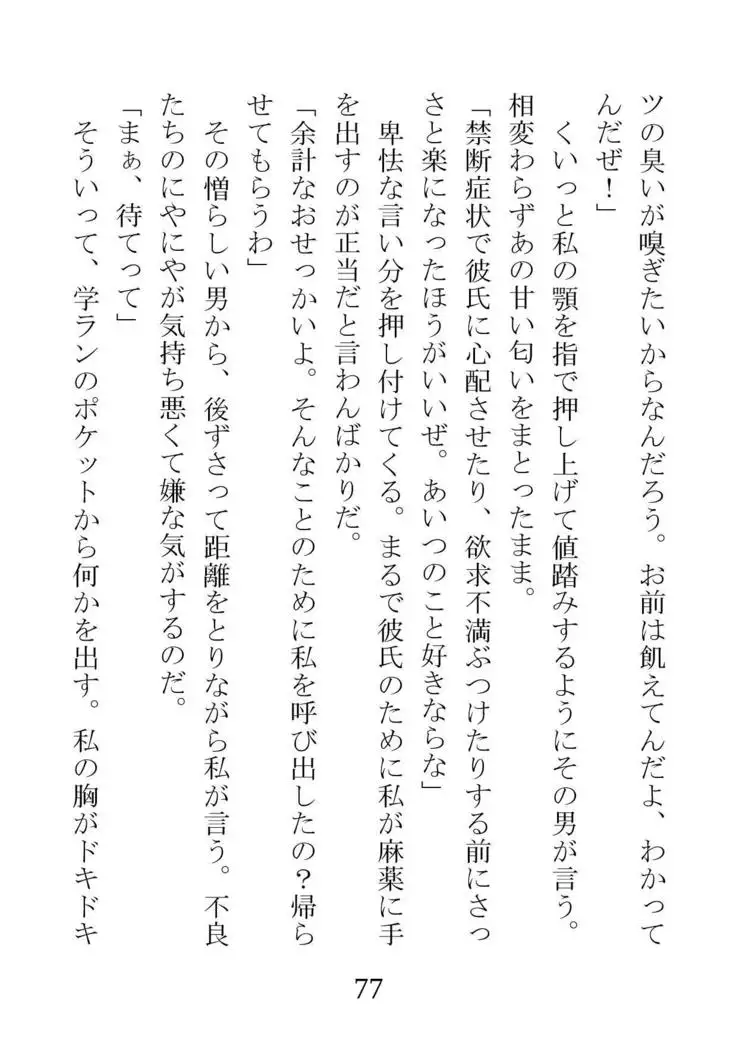 ツの臭いが嗅ぎたいからなんだろう。お前は飢えてんだよ、わかって
んだぜ！」
くいっと私の顎を指で押し上げて値踏みするようにその男が言う。
相変わらずあの甘い匂いをまとったまま。
「禁断症状で彼氏に心配させたり、欲求不満ぶつけたりする前にさっ
さと楽になったほうがいいぜ。あいつのこと好きならな」
卑怯な言い分を押し付けてくる。まるで彼氏のために私が麻薬に手
を出すのが正当だと言わんばかりだ。
「余計なおせっかいよ。そんなことのために私を呼び出したの？帰ら
せてもらうわ」
その憎らしい男から、後ずさって距離をとりながら私が言う。不良
たちのにやにやが気持ち悪くて嫌な気がするのだ。
「まぁ、待てって」
そういって、学ランのポケットから何かを出す。私の胸がドキドキ
77